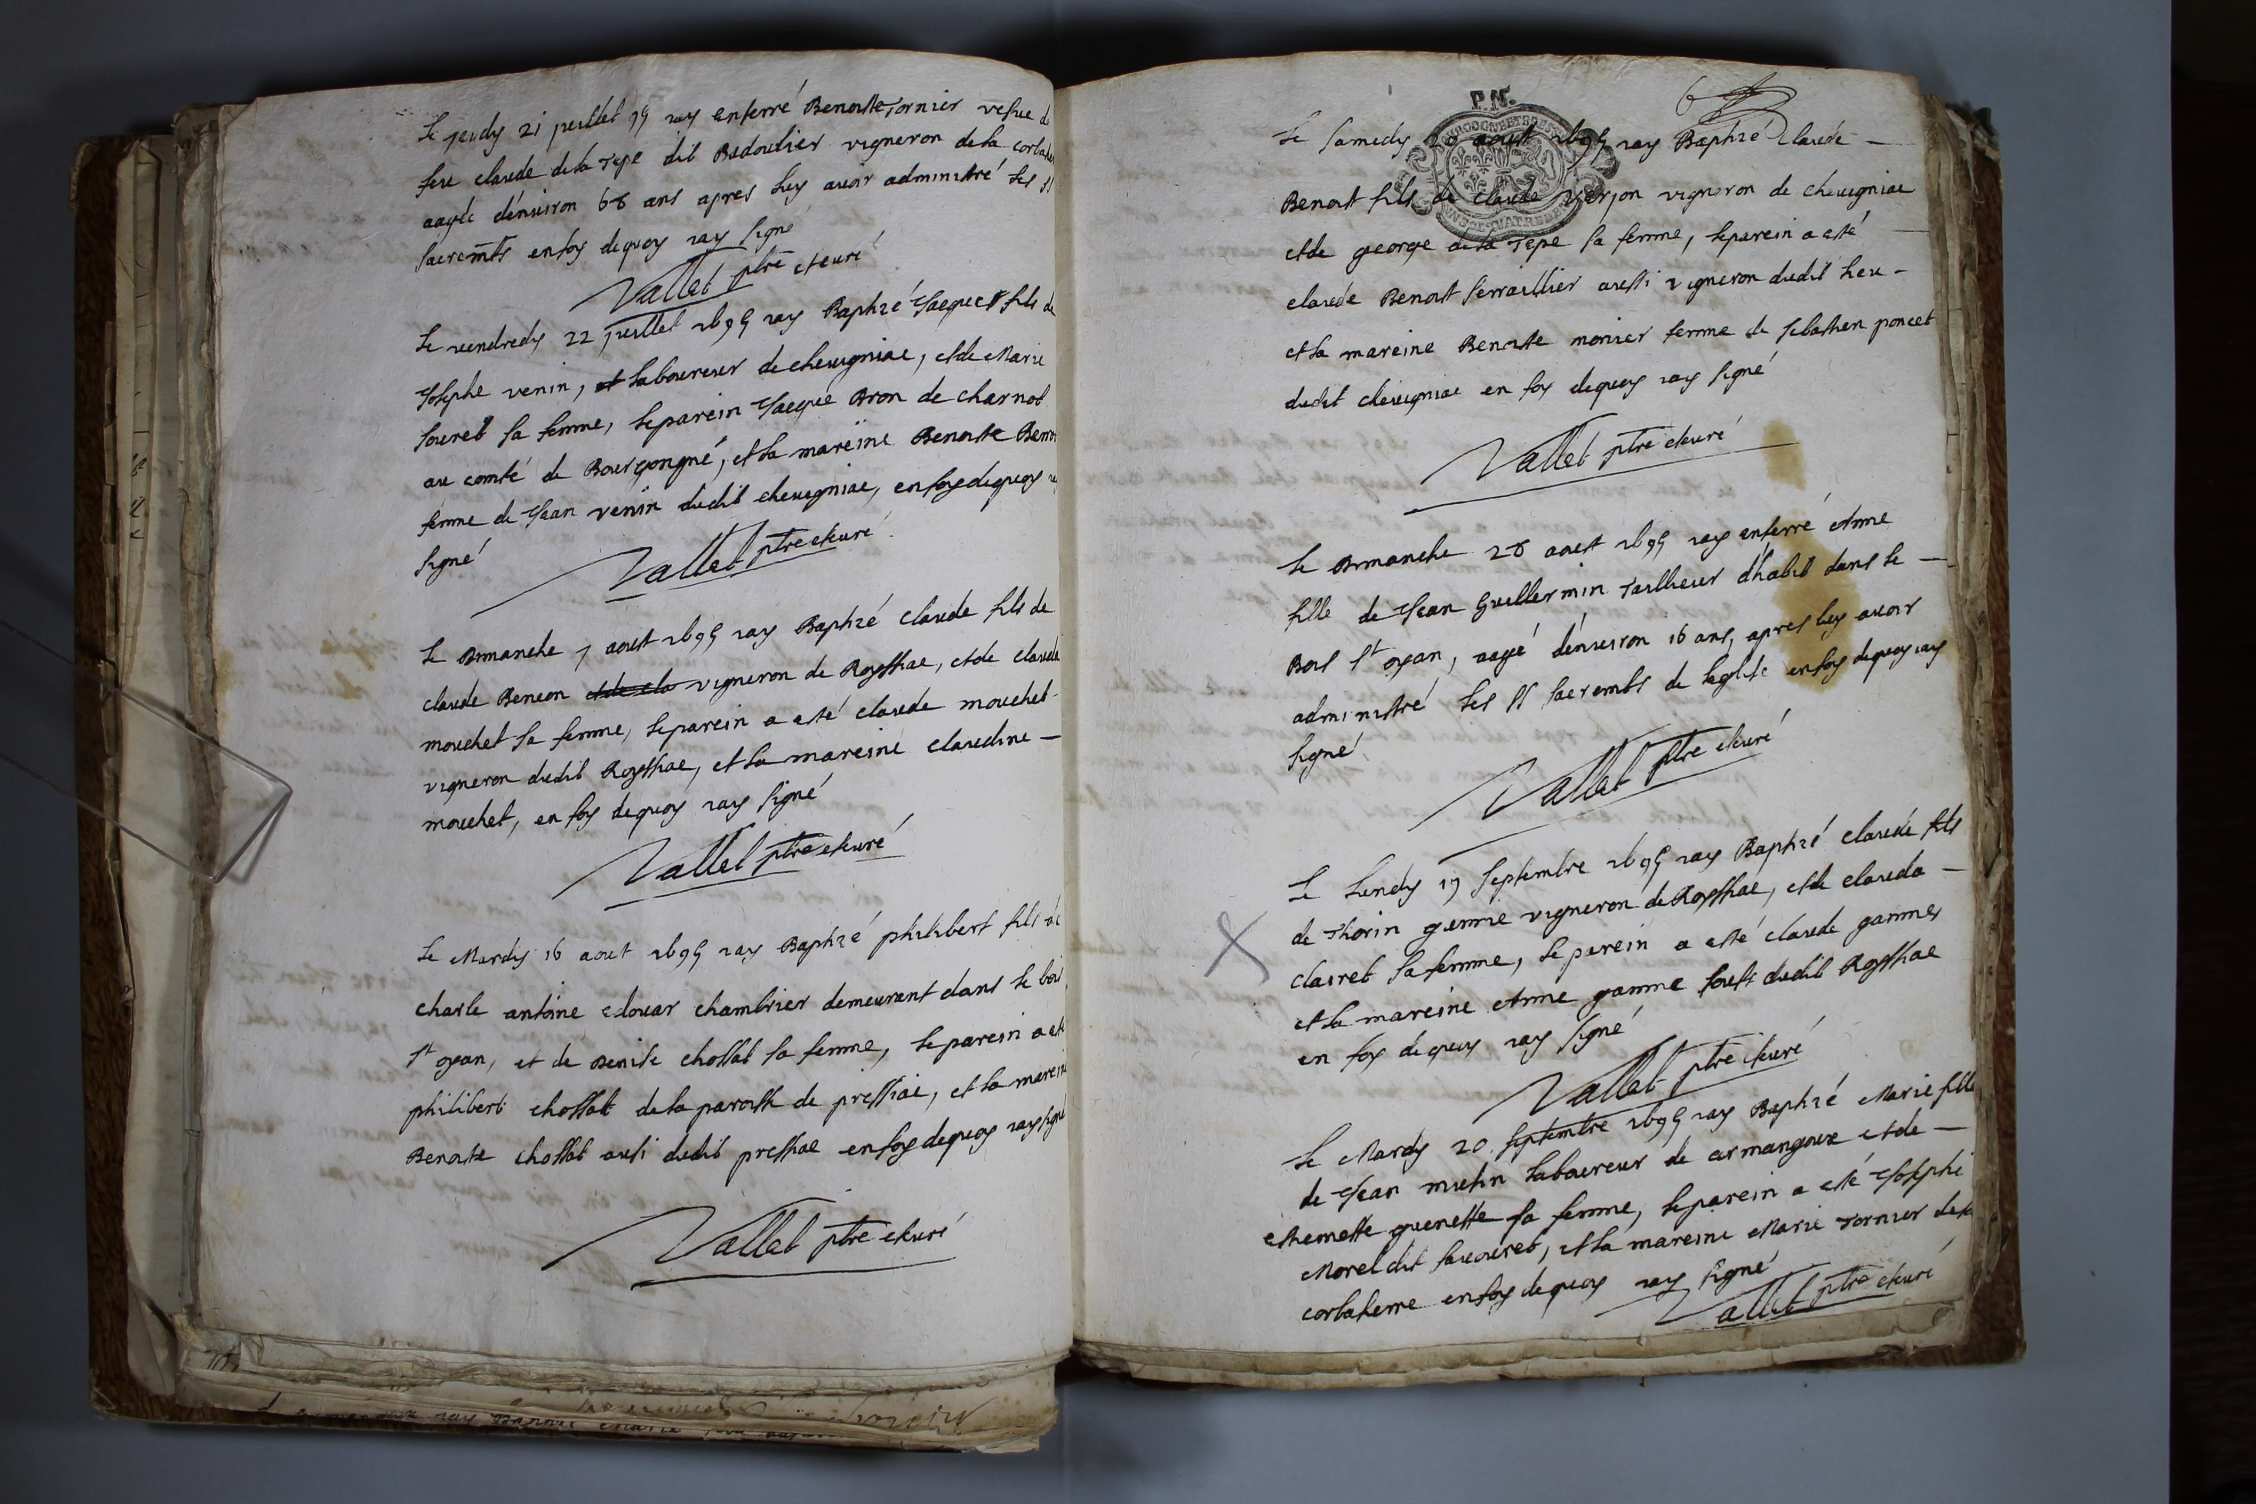 Le jeudy 21 juillet 95 jay enterré Benoiste Tornier vefue de
feu claude de la Tepe dit Badoulier vigneron de la corbaterre
aagée d'enuiron 68 ans apres luy auoir administré les SS
sacremts en foy de quoy jay signé
Vallet ptre et curé
Le vendredy 22 juillet 1695 jay Baptizé Jacques fils de
Joseph venin, laboureur de cheuigniac, et de Marie
souret sa femme, le parein Jacque Bron de charnot
au comté de Bourgongne, et la mareine Benoiste
femme de Jean venin dudit cheuigniac, en foy de quoy
signé
Vallet ptre et curé
Le Dimanche 7 aoust 1695 jay Baptizé claude fils de
claude Beneon et de cla vigneron de Royssiac, et de claude
mouchet sa femme, le parein a esté claude mouchet
vigneron dudit Royssiac, et la mareine claudine -
mouchet, en foy de quoy jay signé
Vallet ptre et curé
Le Mardy 16 aout 1695 jay Baptizé philibert fils de
charle antoine chambrier demeurent dans le bois
St oyan, et de Denise chossat sa femme, le parein a esté
philibert chossat de la paroisse de pressiac, et la mareine
Benoiste chossat ausi dudit pressiac en foy de quoy jay signé
Vallet ptre et curé
P. Nt.
6
Le samedy 20 aoust 1695 jay Baptizé claude -
Benoit fils de claude vierjon vigneron de cheuigniac
et de george de la Tepe sa femme, le parein a esté
claude Benoit serraillier aussi vigneron dudit lieu -
et la mareine Benoiste monier femme de sebastien poncet
dudit cheuigniac en foy de quoy jay signé
Vallet ptre et curé
Le Dimanche 28 aoust 1695 jay enterré Anne
fille de Jean Guillermin Tailleur d'habit dans le -
Bois St oyan, aagé d'enuiron 16 ans, apres luy auoir
administré les SS sacremts de leglise en foy de quoy jay
signé
Vallet ptre et curé
Le Lundy 19 septembre 1695 jay Baptizé claude fils
de Thorin gamme vigneron de Royssiac, et de clauda -
clairet sa femme, le parein a esté claude gammes
et la mareine Anne gamme tous dudit Royssiac
en foy de quoy jay signé
Vallet ptre et curé
Le Mardy 20 septembre 1695 jay Baptizé Marie fille
de Jean mutin laboureur de armangoux et de -
guenette sa femme, le parein a esté Josephe
Morel dit sauouret, et la mareine Marie Tornier de la
corbaterre en foy de quoy jay signé
Vallet ptre et curé